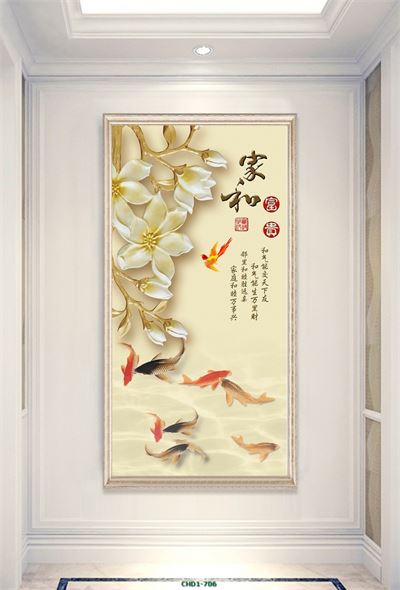 家和
富貴
和气能交天下友
和气能生万里财
邻里和睦胜远亲
家庭和睦万事兴
CHD1-706